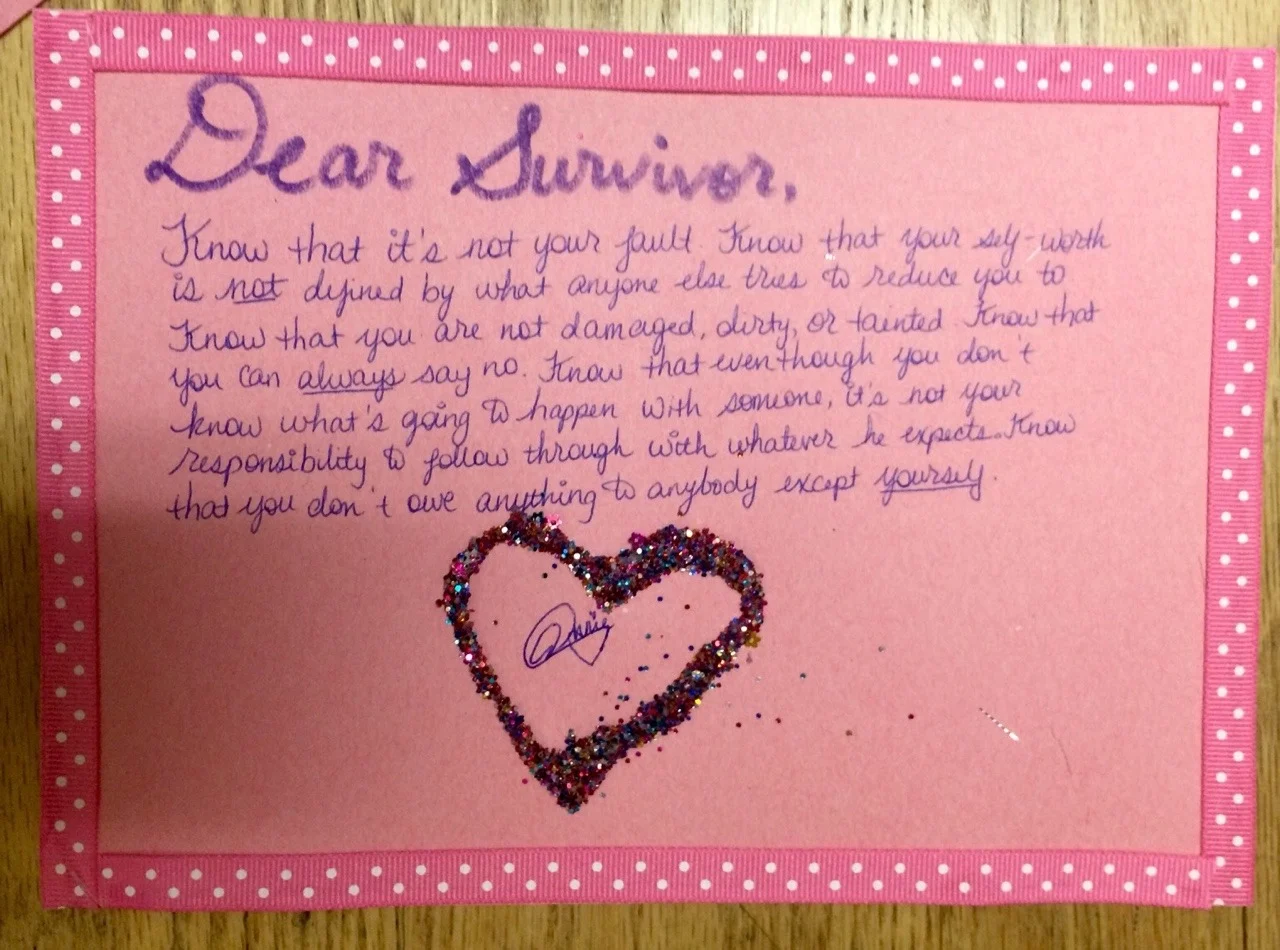 Dear Survivor,
Know that it's not your fault. Know that your self-worth
is not defined by what anyone else tries to reduce you to
Know that you are not damaged, dirty, or tainted Know that
you can always say no. Know that even though you don't
know what's going to happen with someone, it's not your
responsibility to follow through with whatever he expects. Know
that you don't owe anything to anybody except yourself.